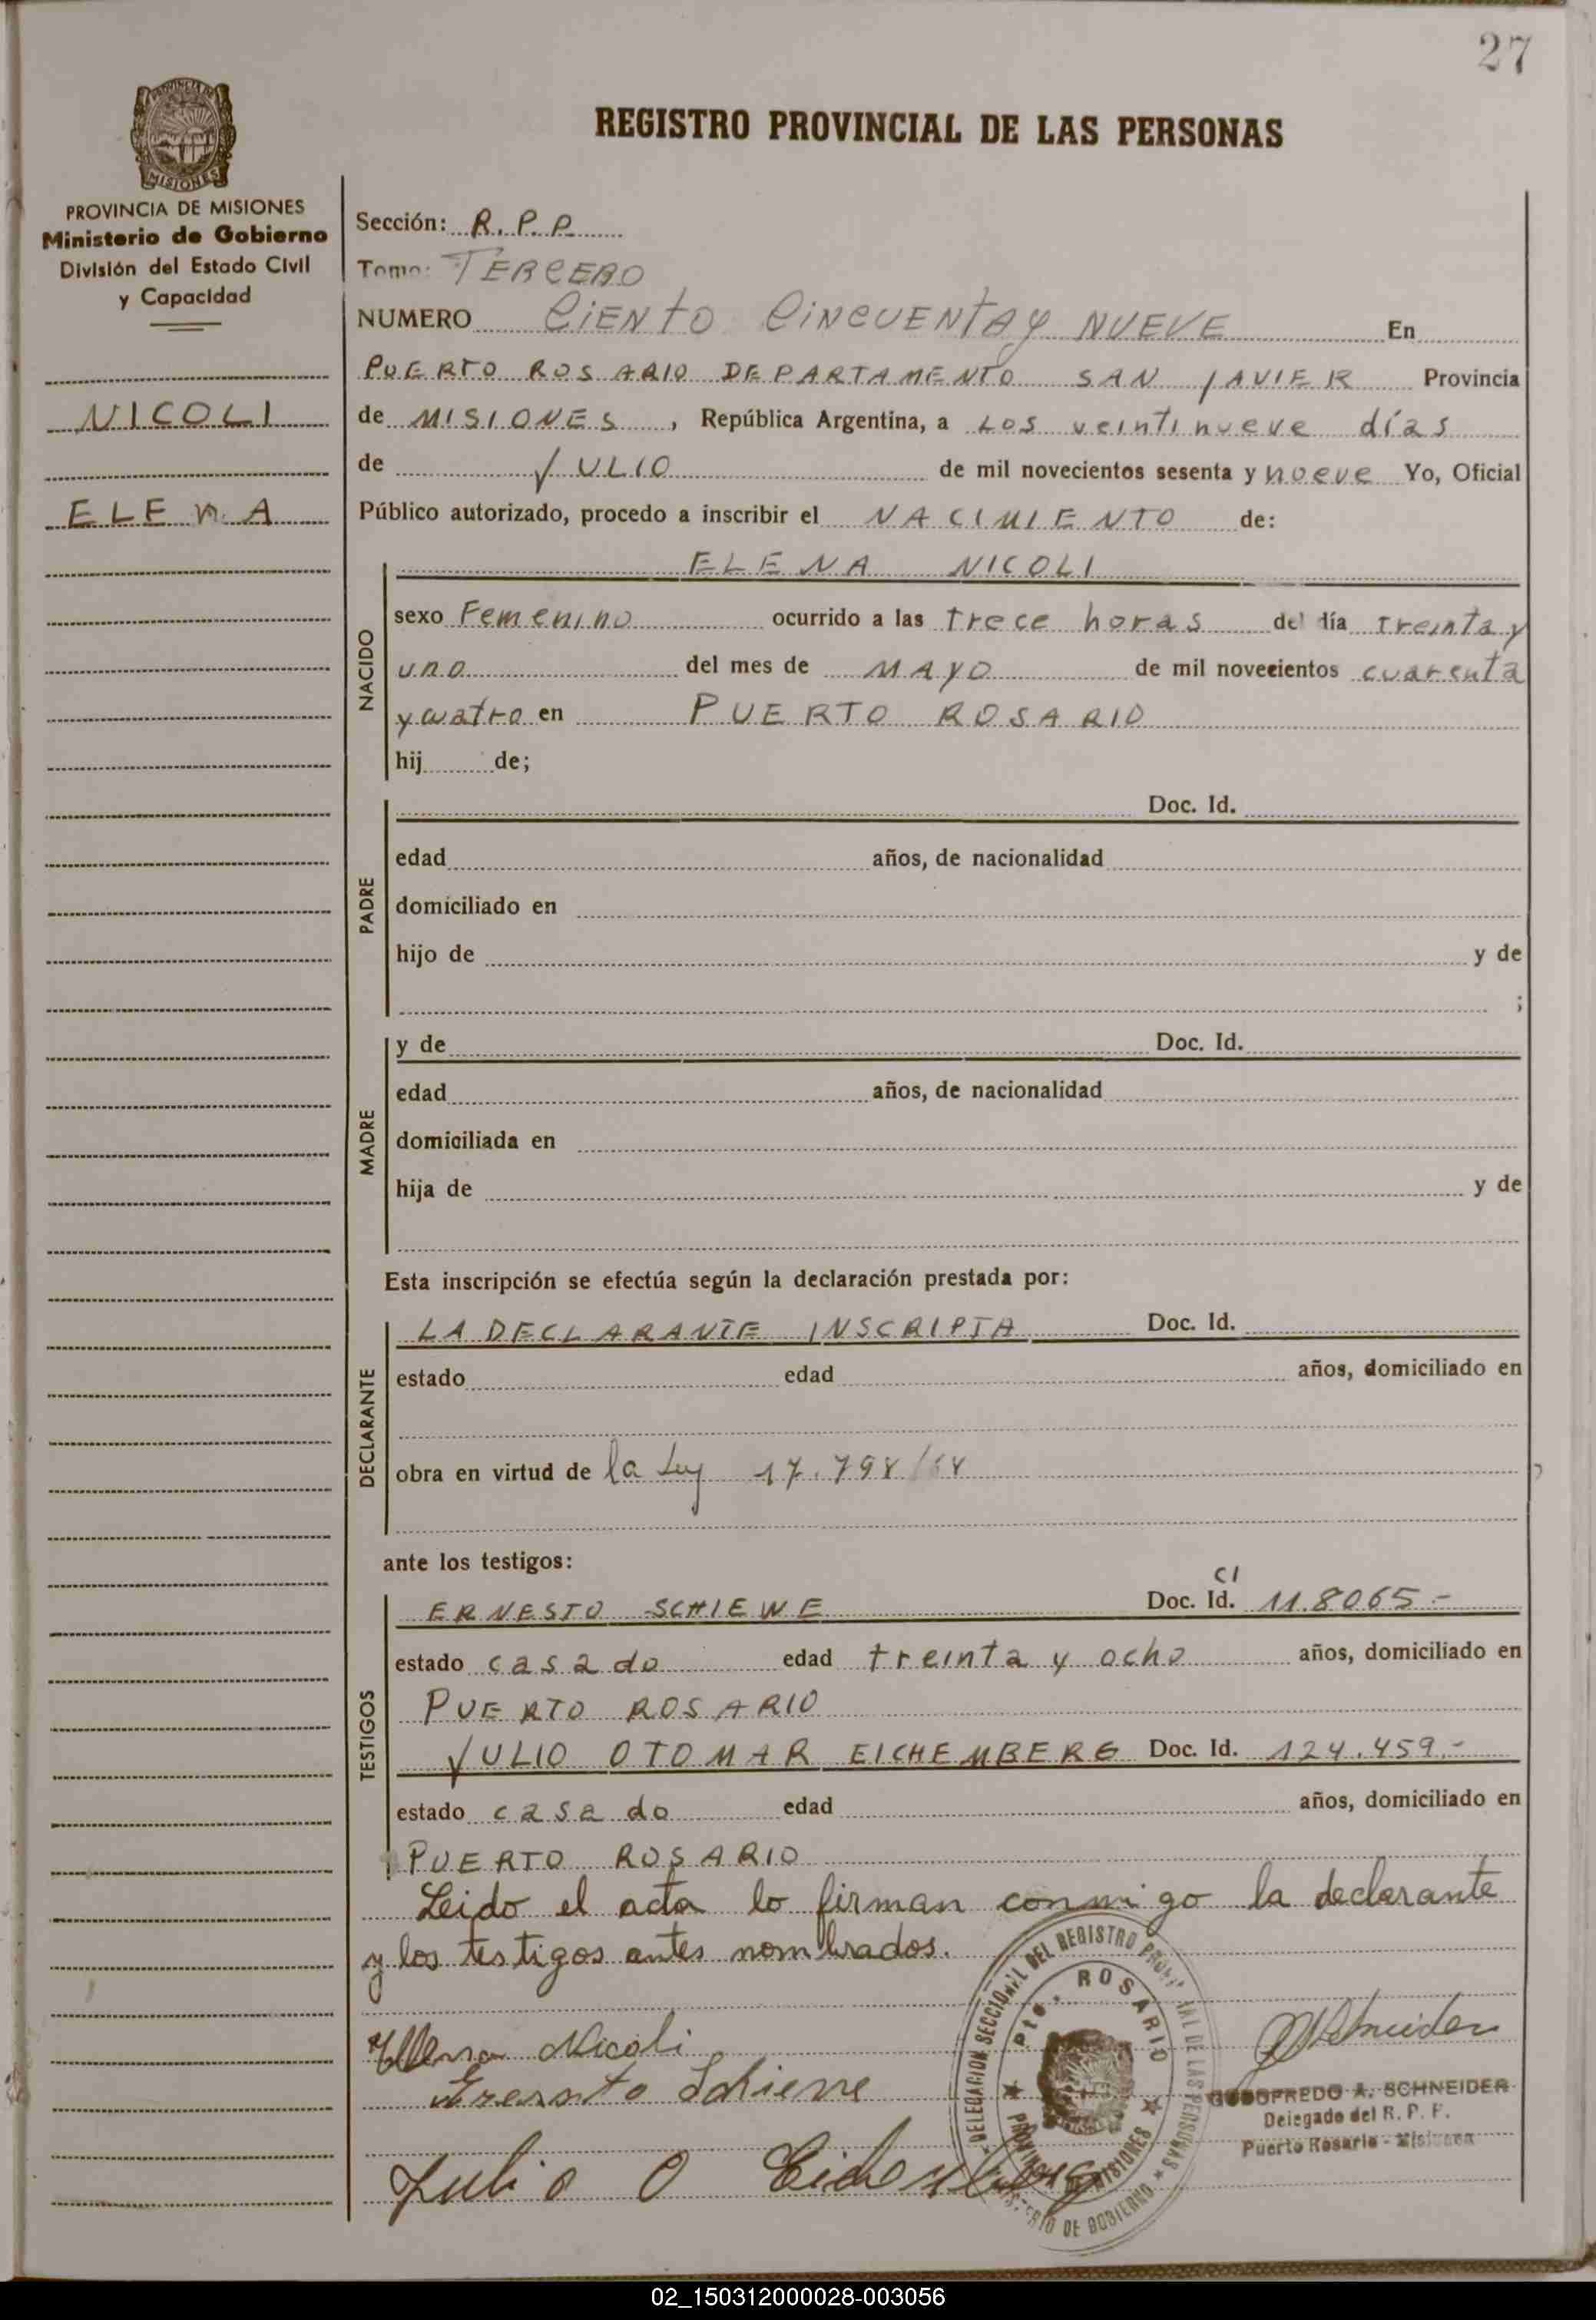 27
REGISTRO PROVINCIAL DE LAS PERSONAS
PROVINCIA DE
MISIONES
PROVINCIA DE MISIONES
Ministerio de Gobierno
División del Estado Civil
y Capacidad
NICOLI
ELENA
Sección: R. P. P.
Tomo: TERCERO
NUMERO CIENTO CINCUENTA y NUEVE En
PUERTO ROSARIO DEPARTAMENTO SAN JAVIER Provincia
de MISIONES, República Argentina, a LOS veintinueve días
de JULIO de mil novecientos sesenta y nueve Yo, Oficial
Público autorizado, procedo a inscribir el NACIMIENTO de:
NACIDO
ELENA NICOLI
sexo Femenino ocurrido a las trece horas del día treinta y
uno del mes de MAYO de mil novecientos cuarenta
y cuatro en PUERTO ROSARIO
hij de;
PADRE
Doc. Id.
edad años, de nacionalidad
domiciliado en
hijo de y de
;
MADRE
y de Doc. Id.
edad años, de nacionalidad
domiciliada en
hija de y de
Esta inscripción se efectúa según la declaración prestada por:
DECLARANTE
LA DECLARANTE INSCRIPTA Doc. Id.
estado edad años, domiciliado en
obra en virtud de la Ley 17.798/
ante los testigos:
TESTIGOS
CI
ERNESTO SCHIEWE Doc. Id. 118065.-
estado casado edad treinta y ocho años, domiciliado en
PUERTO ROSARIO
JULIO OTOMAR EICHEMBERG Doc. Id. 124.459.-
estado casado edad años, domiciliado en
PUERTO ROSARIO
Leido el acta lo firman conmigo la declarante
y los testigos antes nombrados.
DELEGACION SECCIONAL DEL REGISTRO DE LAS PERSONAS
Pto. ROSARIO
MISIONES
DE GOBIERNO
Nicoli
Schiewe
Julio O
Schneider
GODOFREDO A. SCHNEIDER
Delegado del R. P. P.
Puerto Rosario - Misiones
02_150312000028-003056